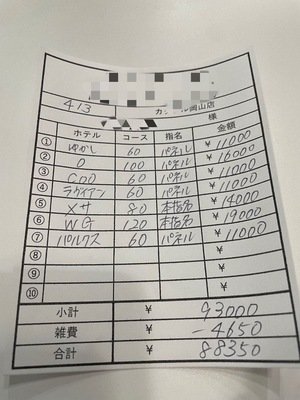 413 岡山店
様
ホテル コース 指名 金額
① ゆかし 60 パネル ¥11000
② O 100 パネル ¥16000
③ COO 60 パネル ¥11000
④ ラヴィアン 60 パネル ¥11000
⑤ メサ 80 本指名 ¥14000
⑥ WG 120 本指名 ¥19000
⑦ パルクス 60 パネル ¥11000
⑧
⑨
⑩
小計 ¥ 93000
雑費 ¥ -4650
合計 ¥ 88350